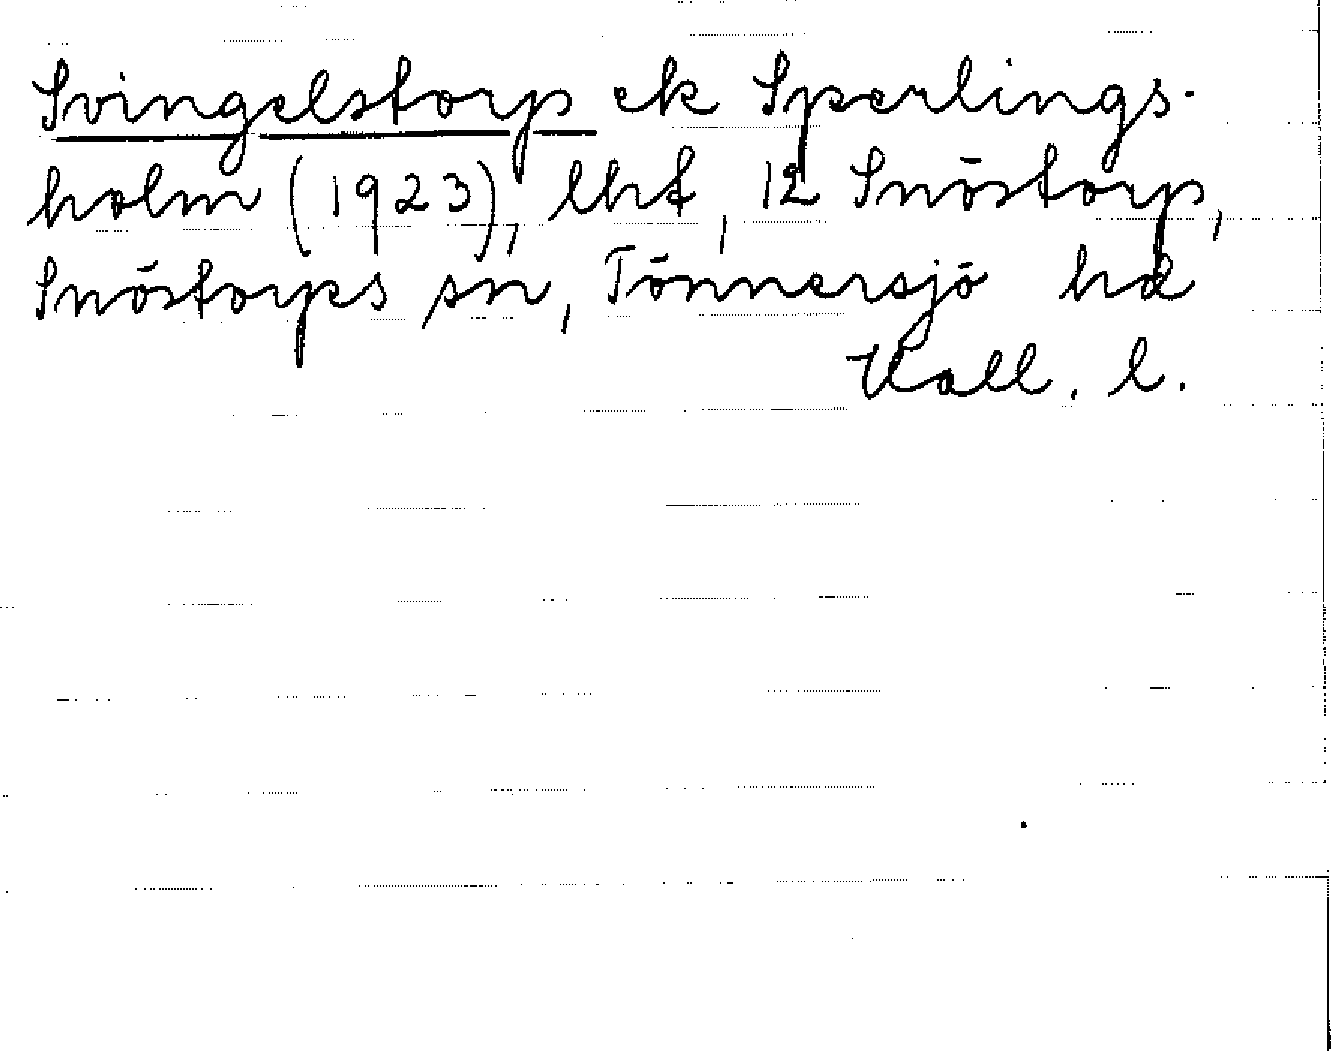 Svingelstorp ek Sperlings-
holm (1923), lht, 12 Snöstorp,
Snöstorps sn, Tönnersjö hd
Hall. l.